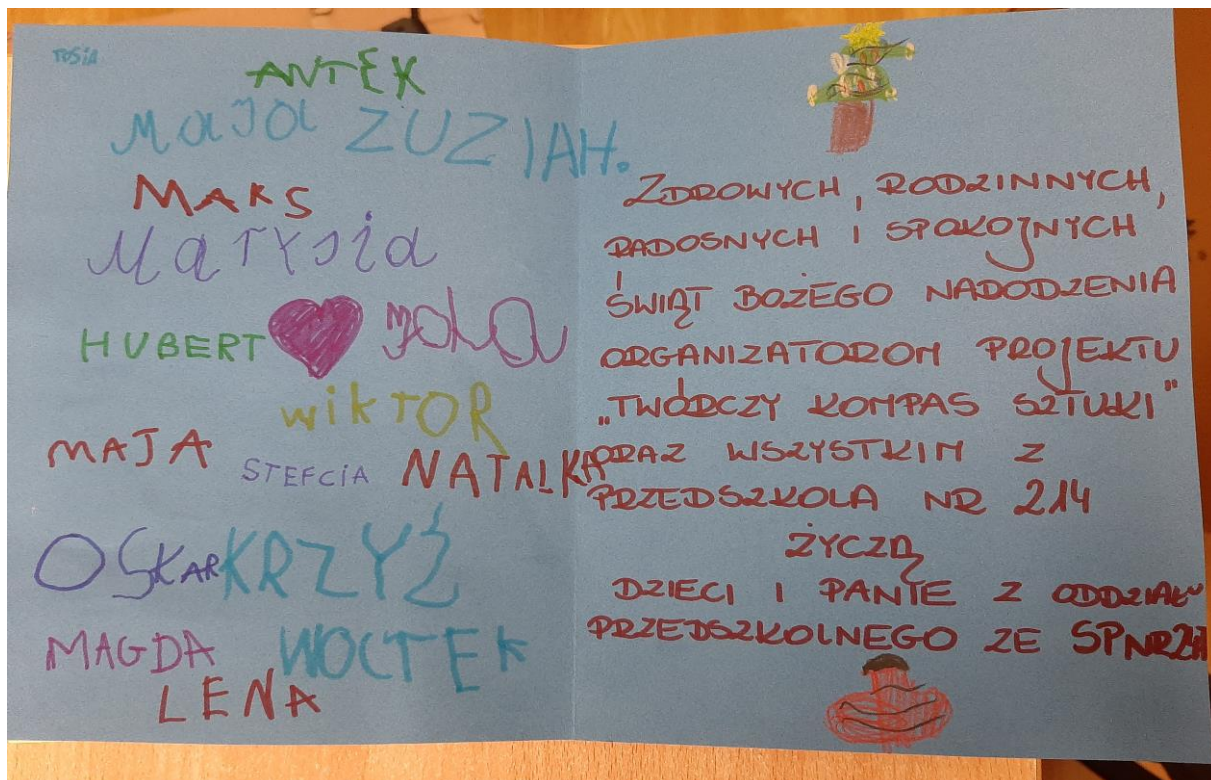 TOSIA
ANTEK
MAJA ZUZIAH.
MAKS
MARYSIA
HUBERT JOLA
wikTOR
MAJA STEFCIA NATALKA
OSKAR KRZYŚ
MAGDA WOCTEK
LENA
ZDROWYCH, RODZINNYCH,
RADOSNYCH I SPOKOJNYCH
ŚWIĄT BOŻEGO NARODZENIA
ORGANIZATOROM PROJEKTU
„TWÓRCZY KOMPAS SZTUKI"
ORAZ WSZYSTKIM Z
PRZEDSZKOLA NR 214
ŻYCZĄ
DZIECI I PANIE Z ODDZIAŁU
PRZEDSZKOLNEGO ZE SP NR